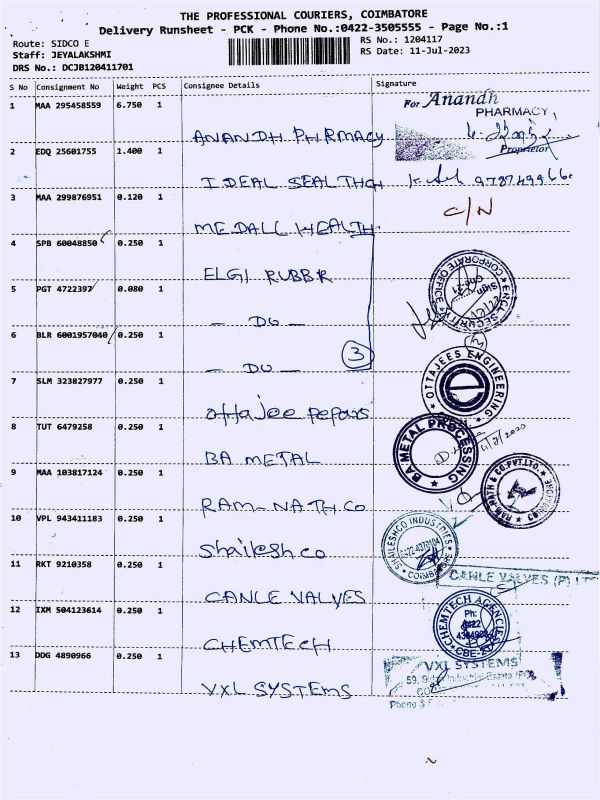 THE PROFESSIONAL COURIERS, COIMBATORE
Delivery Runsheet - PCK - Phone No.:0422-3505555 - Page No.:1
Route: SIDCO E
Staff: JEYALAKSHMI
DRS No.: DCJB120411701
RS No.: 1204117
RS Date: 11-Jul-2023
S No Consignment No Weight PCS Consignee Details Signature
1 MAA 295458559 6.750 1 ANANDH PHRMACY
For Anandh
PHARMACY,
Proprietor
2 EDQ 25601755 1.400 1 IDEAL SEALTHCH
3 MAA 299876951 0.120 1 MEDALL HEALTH C/N
4 SPB 60048850 0.250 1 ELGI RUBBR
ERGL SECURITY
CORPORATE OFFICE
5 PGT 4722397 0.080 1 - DO -
6 BLR 6001957040 0.250 1 - DO -
3
OTTAJEES ENGINEERING
7 SLM 323827977 0.250 1 ottajee pepars
8 TUT 6479258 0.250 1 BA METAL
BA METAL PROCESSING
9 MAA 103817124 0.250 1 RAM-NATH CO
RAM NATH & CO.PVT.LTD.
10 VPL 943411183 0.250 1 Shailesh co
SHAILESHCO INDUSTRIES
11 RKT 9210358 0.250 1 CANLE VALVES
CANLE VALVES (P) LT
12 IXM 504123614 0.250 1 CHEMTECH
CHEMTECH AGENCIE
Ph:
0422
CBE-21
13 DDG 4890966 0.250 1 VXL SYSTEMS
VXL SYSTEMS